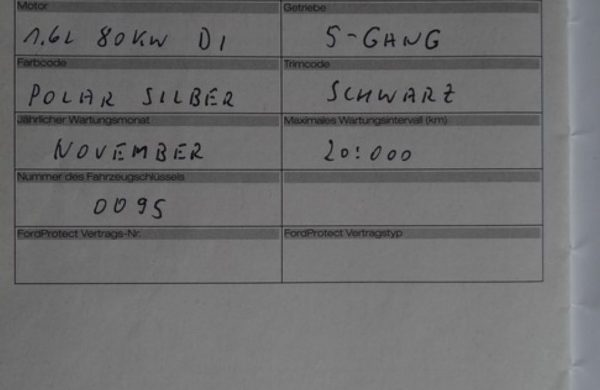 Motor Getriebe
1.6L 80KW DI 5-GANG
Farbcode Trimcode
POLAR SILBER SCHWARZ
Jährlicher Wartungsmonat Maximales Wartungsintervall (km)
NOVEMBER 20:000
Nummer des Fahrzeugschlüssels
0095
FordProtect Vertrags-Nr. FordProtect Vertragstyp